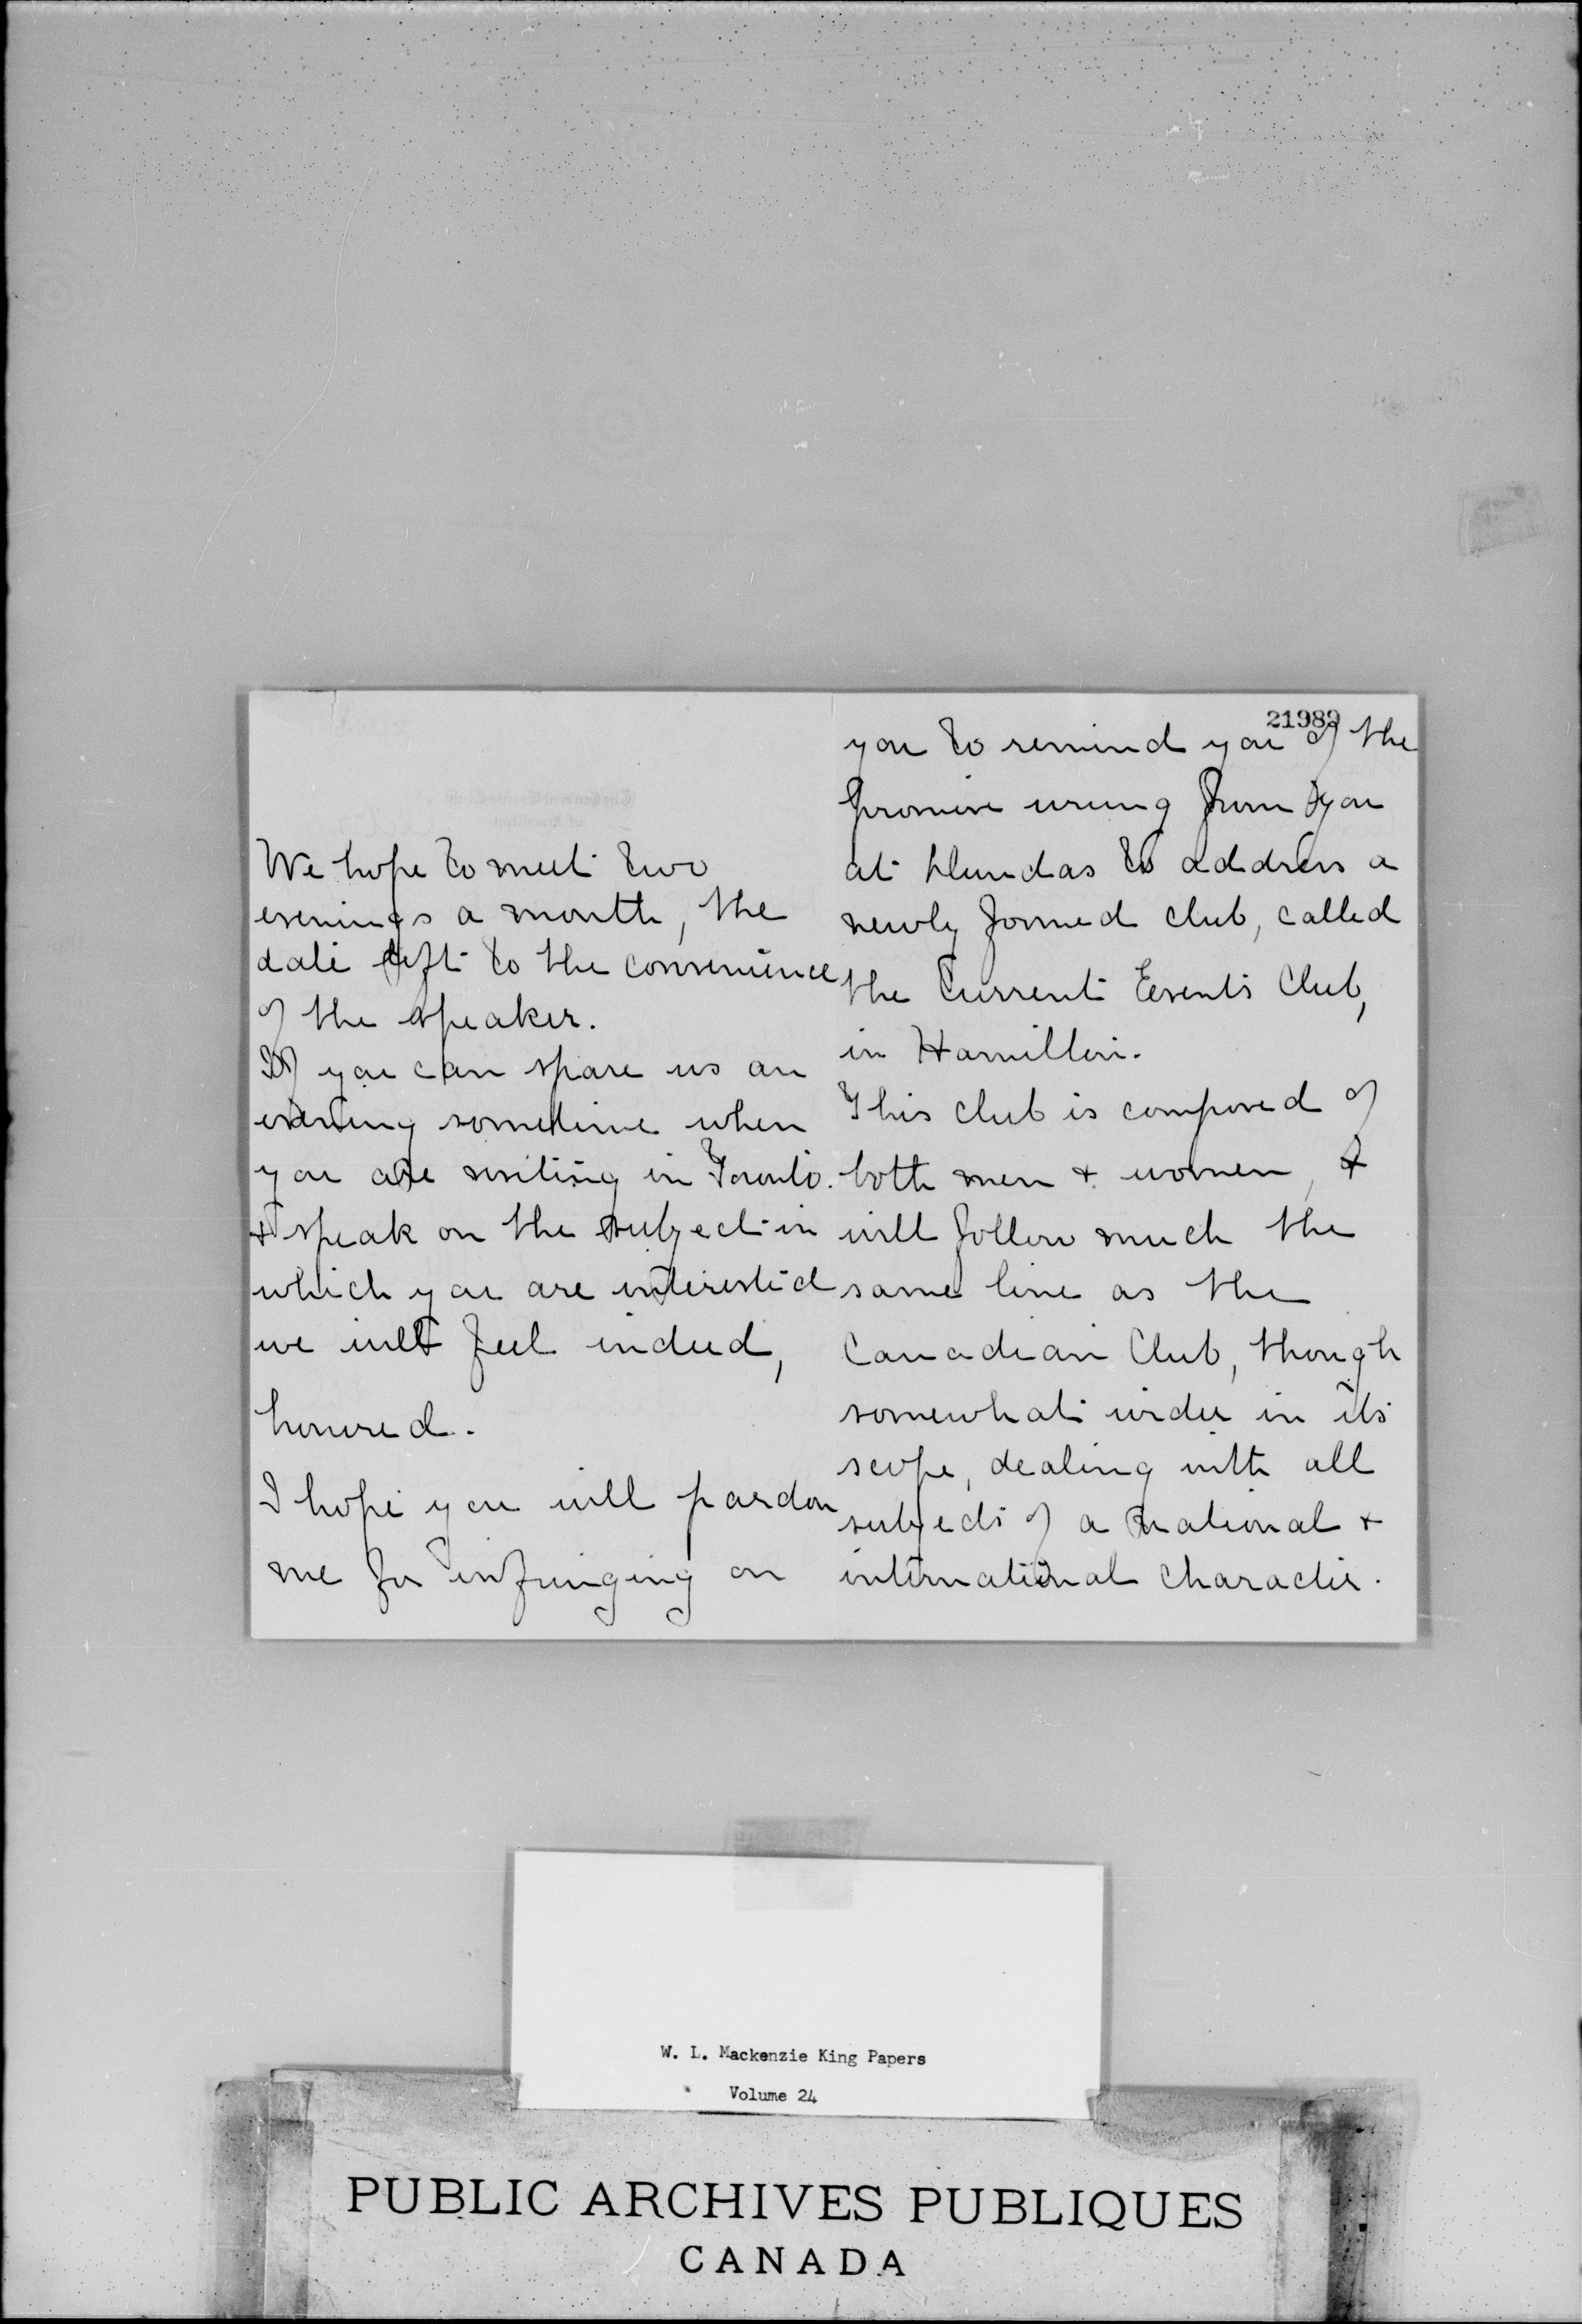 21989
We hope to meet two
evenings a month, the
date left to the convenience
of the speaker.
If you can spare us an
evening sometime when
you are visiting in Toronto.
& speak on the subject in
which you are interested
we will feel indeed,
honored.
I hope you will pardon
me for infringing on
you to remind you of the
promise wrung from you
at Dundas to address a
newly formed club, called
the Current Events Club,
in Hamilton.
This club is composed of
both men & women, &
will follow much the
same line as the
Canadian Club, though
somewhat wider in its
scope, dealing with all
subjects of a national &
international character.
W. L. Mackenzie King Papers
Volume 24
PUBLIC ARCHIVES PUBLIQUES
CANADA